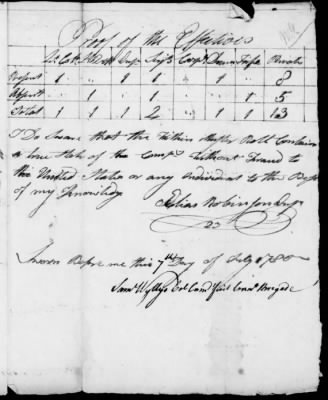 Proof of the Effectives
Serjts Corpls Drum Fife Privates
Present 1 1 1 1 8
Absent 1 1 1 1 5
Total 1 1 1 2 1 1 13
I Do Swear that the Within Muster Roll Contains
a true State of the Compy Without Fraud to
the United States or any Individual to the Best
of my Knowledg
Elias Robinson
Sworn Before me this 7th Day of July 1780
Saml Wyllys Col Comd First Conn Brigade